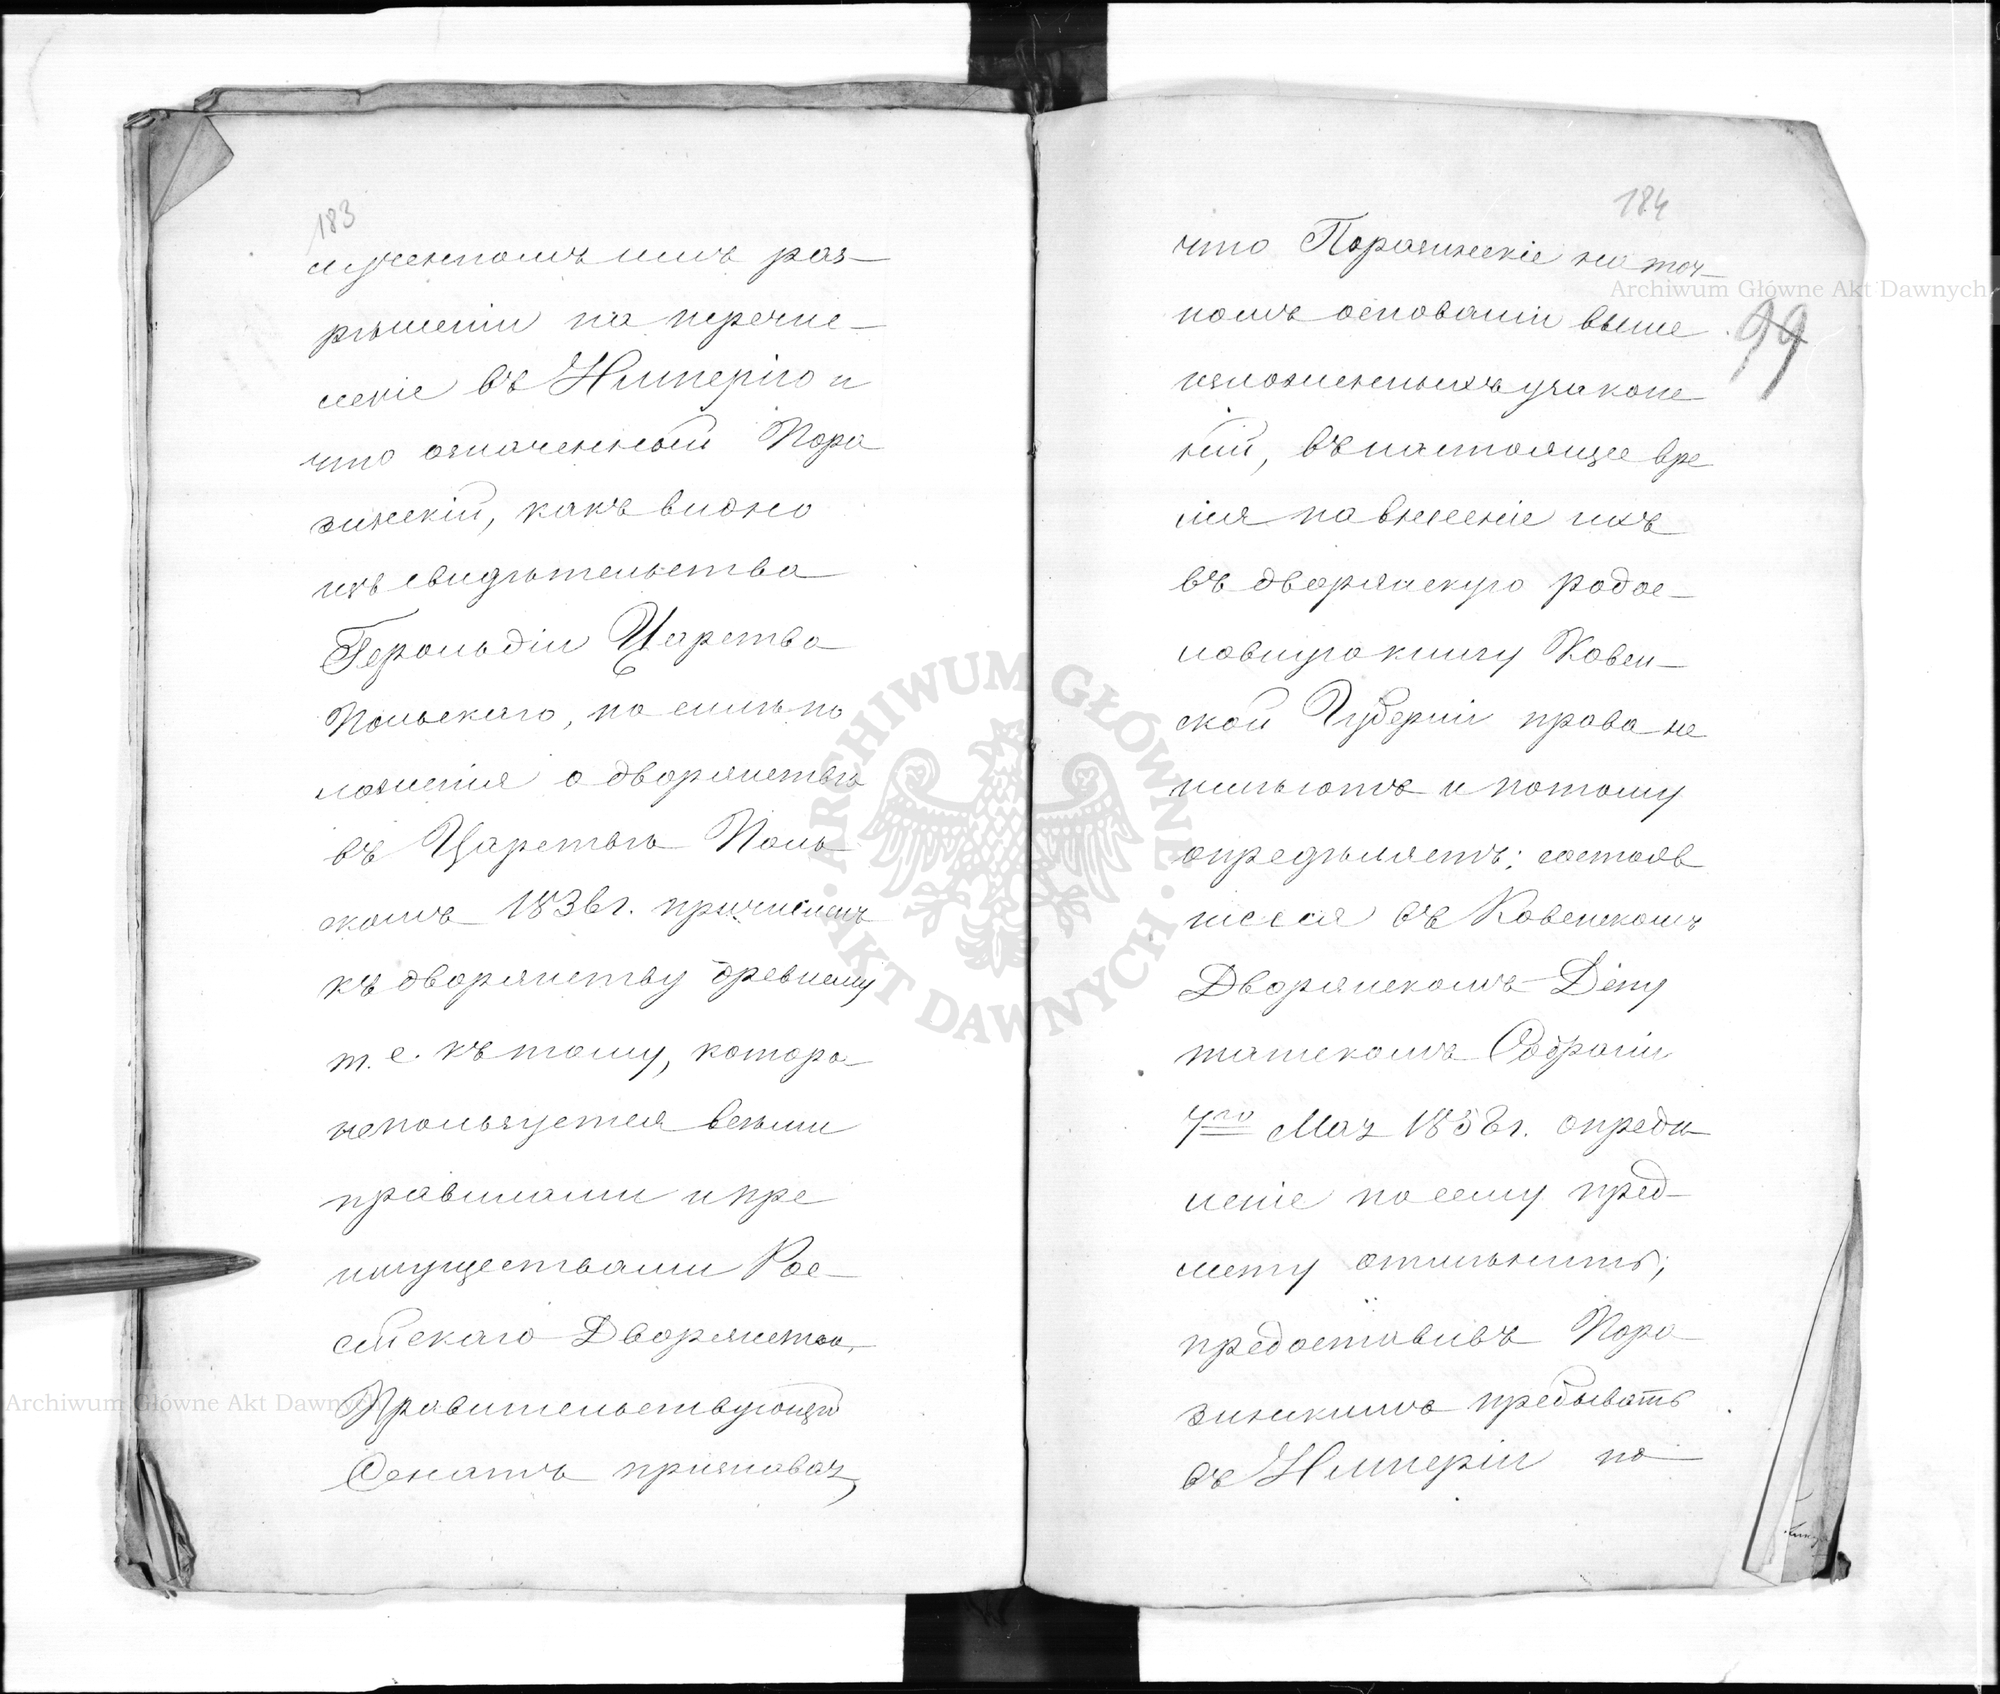 183
лученномъ имъ раз-
рѣшеніи на перечис-
леніе въ Имперію и
что означенный Пора
зинскій, какъ видно
изъ свидѣтельства
Герольдіи Царства
Польскаго, по силѣ по
ложенія о дворянствѣ
въ Царствѣ Поль
скомъ 1836 г. причисленъ
къ дворянству древнему
т. е. къ тому, которо
непользуется всѣми
правилами и пре
имуществами Рос-
сійскаго Дворянства,
Правительствующій
Сенатъ признавая,
184
что Поразинскіе на точ-
номъ основаніи выше
99
изложенныхъ узаконе
ній, въ настоящее вре
мя на внесеніе ихъ
въ дворянскую родос-
ловную книгу Ковен-
ской Губерніи права не
имѣютъ и потому
опредѣляетъ: состояв
шееся въ Ковенскомъ
Дворянскомъ Депу
татскомъ Собраніи
7го Мая 1858 г. опредѣ
леніе по сему пред-
мету отмѣнить;
предоставивъ Пора
зинскимъ пребывать
въ Имперіи по
Archiwum Główne Akt Dawnych
Archiwum Główne Akt Dawnych
ARCHIWUM GŁÓWNE AKT DAWNYCH